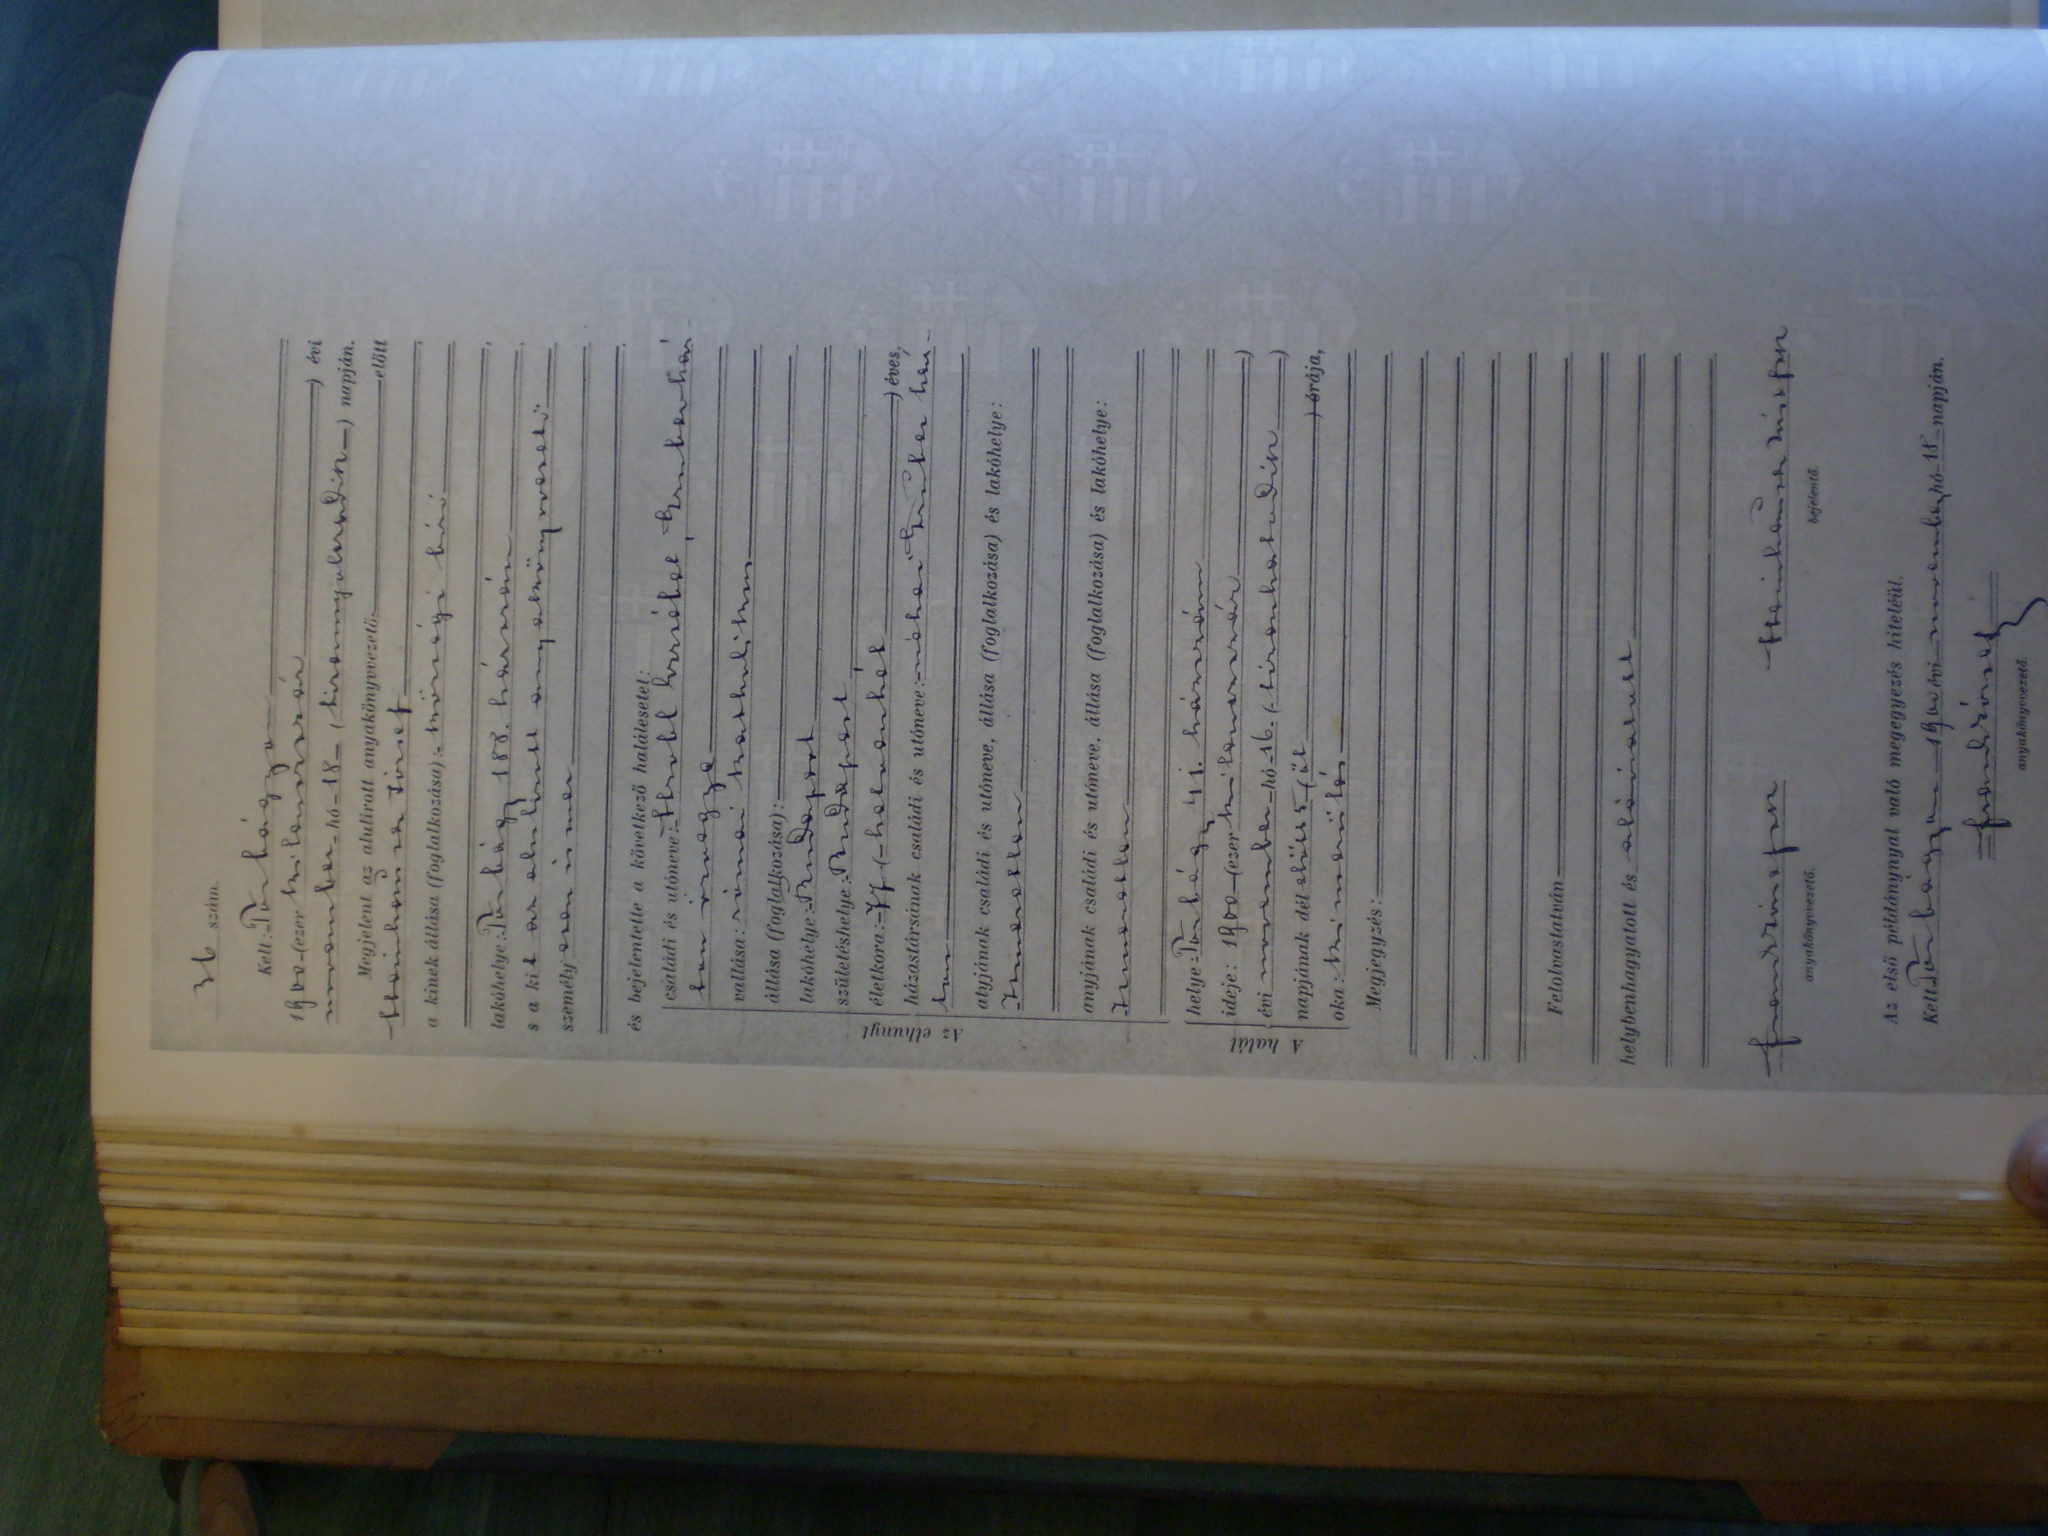 36 szám.
Kelt: Törbágyon
1900 (ezer kilenczszáz) évi
november hó 18 (tizennyolczadik) napján.
Megjelent az alulirott anyakönyvezető előtt
Steinhauser József
a kinek állása (foglalkozása): községi biró
lakóhelye: Törbágy 188. házszám
s a kit az alulirott anyakönyvvezető
személyesen ismer
és bejelentette a következő halálesetet:
családi és utóneve: Strobl Erzsébet,
özvegye
vallása: római katholikus
állása (foglalkozása):
lakóhelye: Budapest
születéshelye: Budapest
életkora: 77 (hetvenhét) éves,
házastársának családi és utóneve: néhai
atyjának családi és utóneve, állása (foglalkozása) és lakóhelye:
Ismeretlen
anyjának családi és utóneve, állása (foglalkozása) és lakóhelye:
Ismeretlen
Az elhunyt
helye: Törbágy 41. házszám
ideje: 1900 (ezer kilenczszáz)
évi november hó 16. (tizenhatodik)
napjának dél előtt 5 (öt) órája,
oka: kimerülés
A halál
Megjegyzés:
Felolvastatván
helybenhagyatott és aláíratott
anyakönyvvezető.
Steinhauser József
bejelentő.
Az első példánynyal való megegyezés hiteléül.
Kelt Törbágyon 1900 évi november hó 18 napján.
anyakönyvvezető.